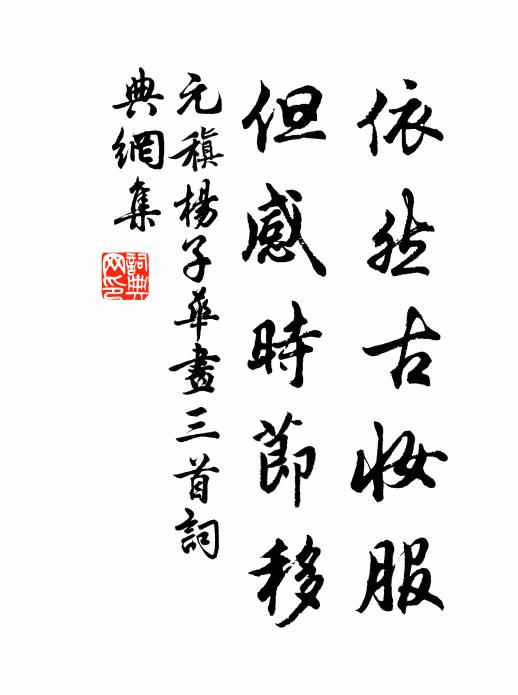 依然古妆服
但感時節移
元稹楊子華畫三首詞
典網集
詞典
网印